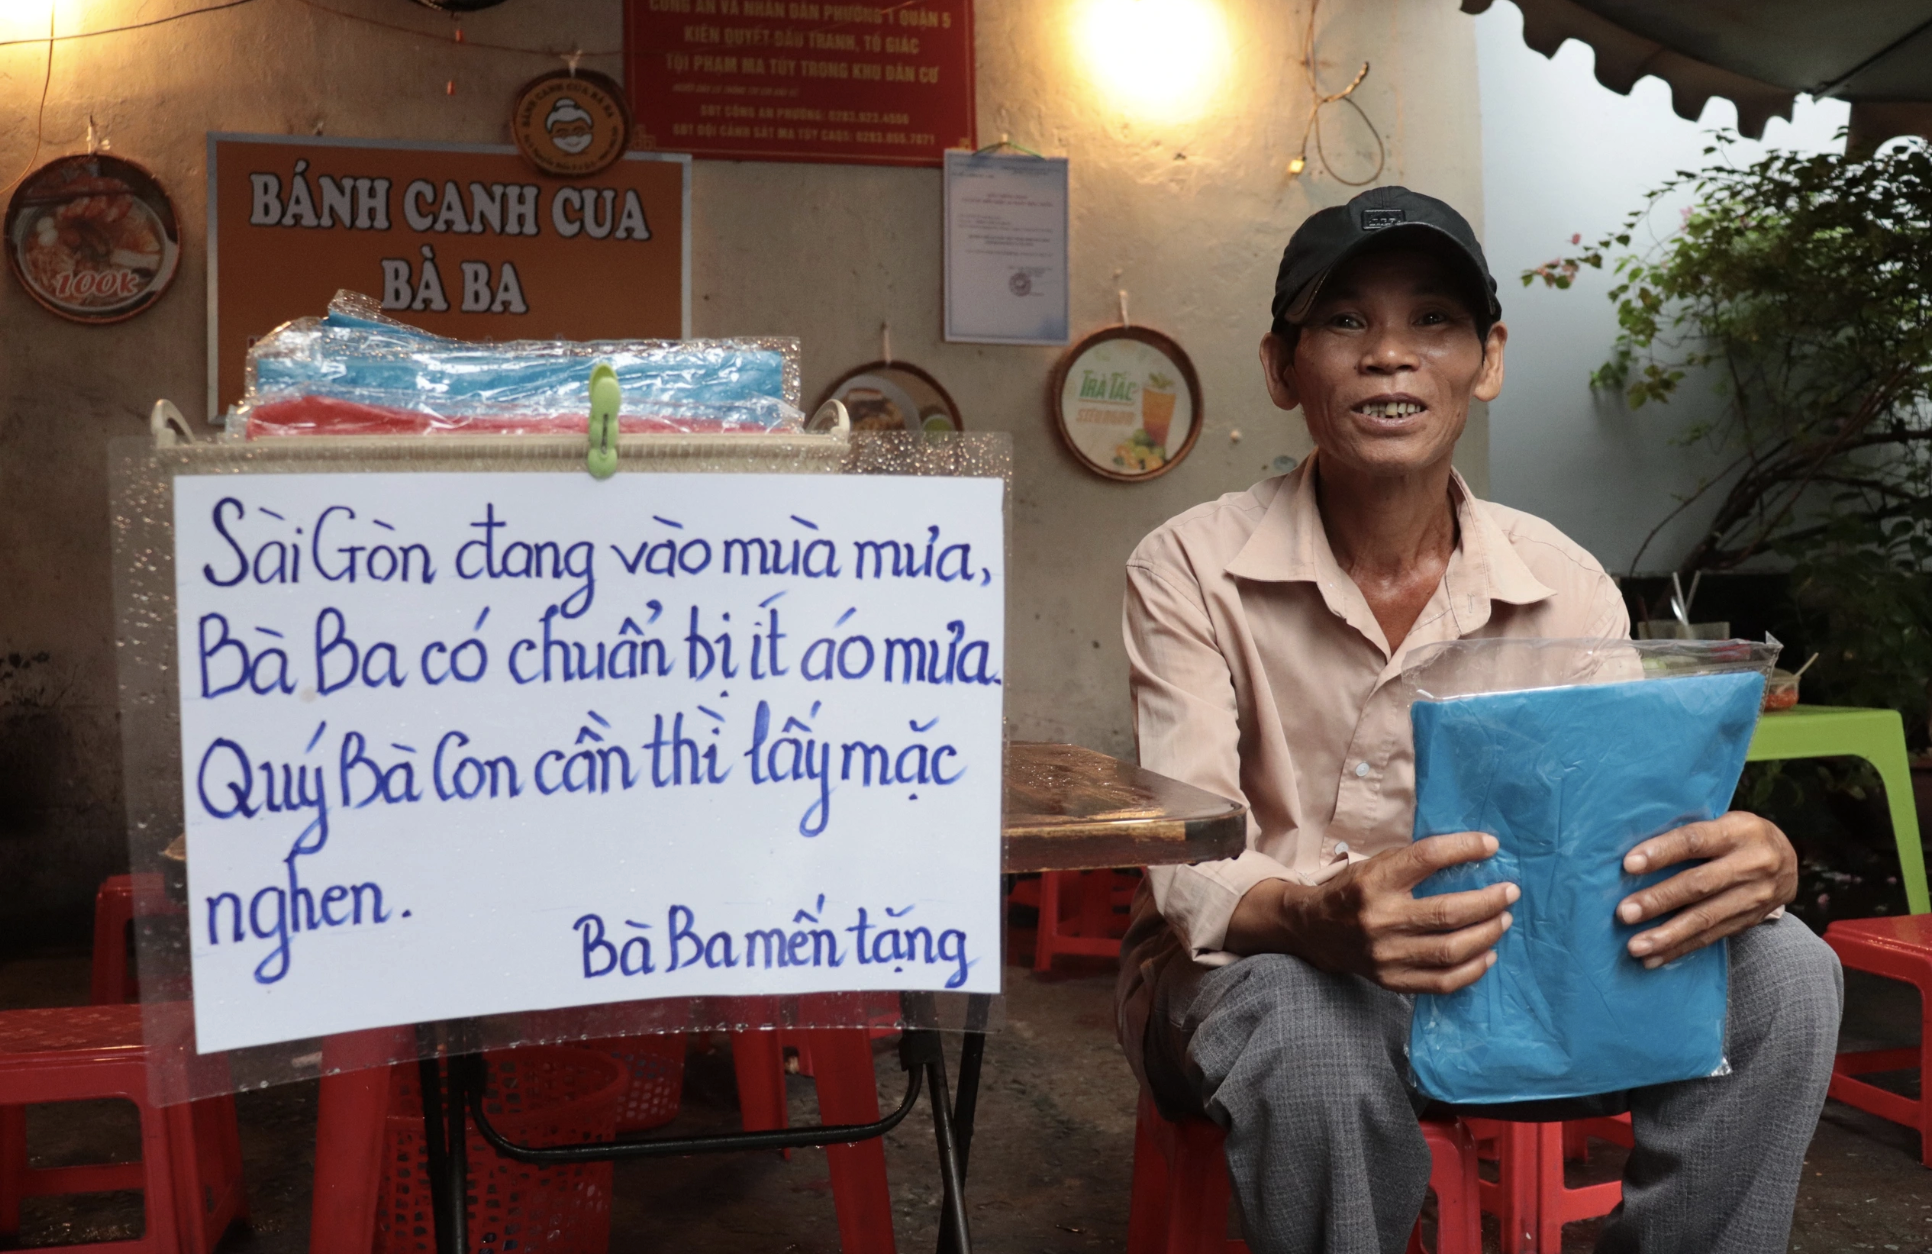 CÔNG AN VÀ NHÂN DÂN PHƯỜNG 1 QUẬN 5
KIÊN QUYẾT ĐẤU TRANH, TỐ GIÁC
TỘI PHẠM MA TÚY TRONG KHU DÂN CƯ
SĐT CÔNG AN PHƯỜNG: 0283.623.4556
SĐT ĐỘI CẢNH SÁT MA TÚY CAQ5: 0283.855.7871
BÁNH CANH CUA BÀ BA
BÁNH CANH CUA
BÀ BA
100k
TRÀ TẮC
Sài Gòn đang vào mùa mưa,
Bà Ba có chuẩn bị ít áo mưa.
Quý Bà Con cần thì lấy mặc
nghen.
Bà Ba mến tặng